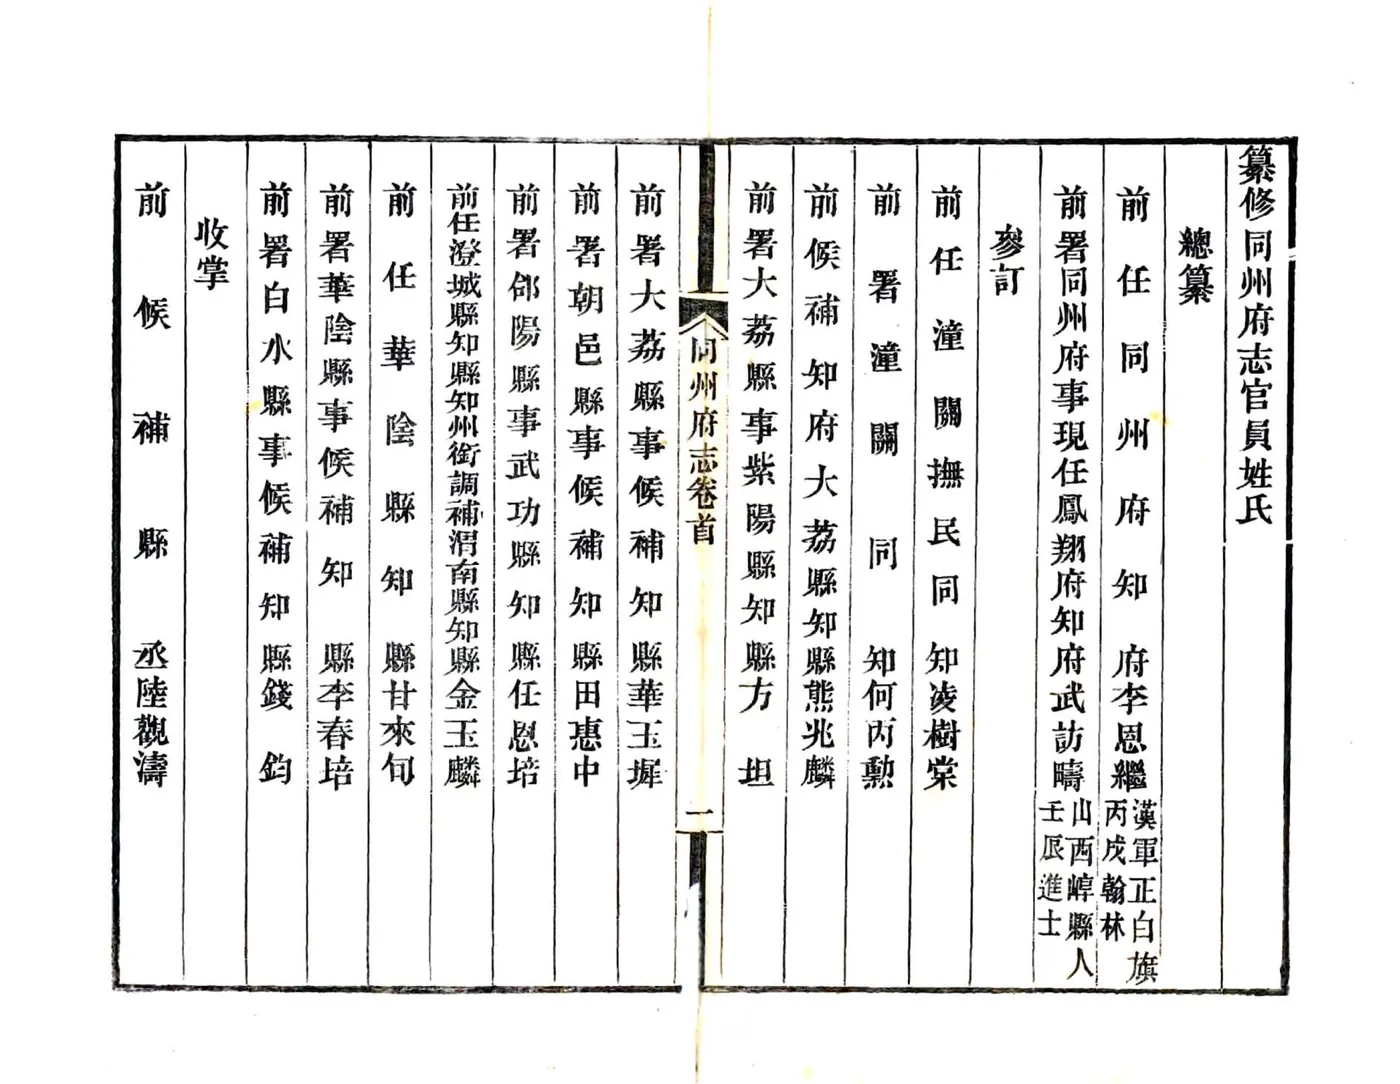 纂修同州府志官員姓氏
總纂
前任同州府知府李恩繼漢軍正白旗
丙戌翰林
前署同州府事現任鳳翔府知府武訪疇山西崞縣人
壬辰進士
參訂
前任潼關撫民同知凌樹棠
前署潼關同知何丙勲
前候補知府大荔縣知縣熊兆麟
前署大荔縣事紫陽縣知縣方坦
同州府志卷首
一
前署大荔縣事候補知縣華玉墀
前署朝邑縣事候補知縣田惠中
前署郃陽縣事武功縣知縣任恩培
前任澄城縣知縣知州銜調補渭南縣知縣金玉麟
前任華陰縣知縣甘來旬
前署華陰縣事候補知縣李春培
前署白水縣事候補知縣錢鈞
收掌
前候補縣丞陸觀濤